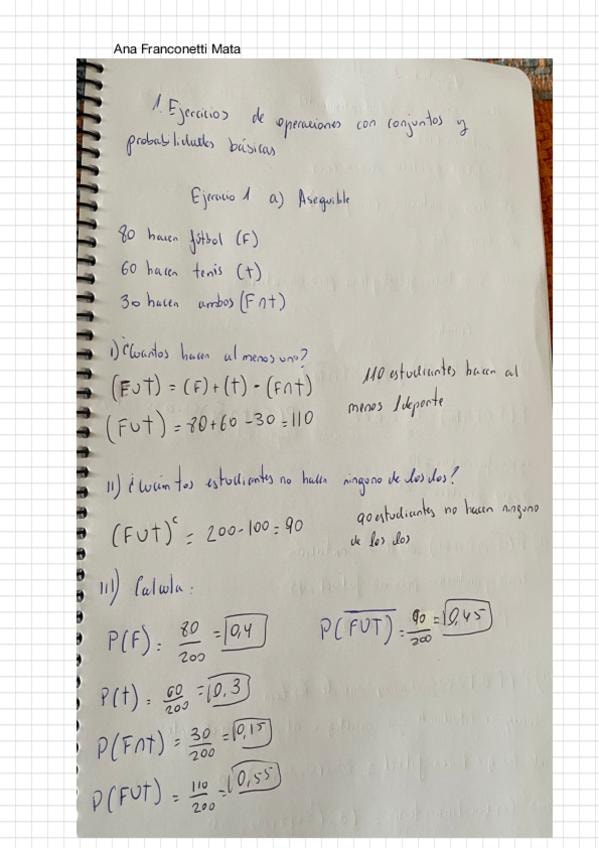 Ana Franconetti Mata
1. Ejercicios de operaciones con conjuntos y
probabilidades básicas
Ejercicio 1 a) Asequible
80 hacen fútbol (F)
60 hacen tenis (t)
30 hacen ambos (F∩t)
I) ¿Cuántos hacen al menos uno?
(F∪t) = (F) + (t) - (F∩t)
(F∪t) = 80+60-30 = 110
110 estudiantes hacen al
menos 1 deporte
II) ¿Cuántos estudiantes no hacen ninguno de los dos?
(F∪t)ᶜ = 200-100 = 90
90 estudiantes no hacen ninguno
de los dos
III) Calcula:
P(F) = 80/200 = 0,4
P(F∪T)‾ = 90/200 = 0,45
P(t) = 60/200 = 0,3
P(F∩t) = 30/200 = 0,15
P(F∪t) = 110/200 = 0,55